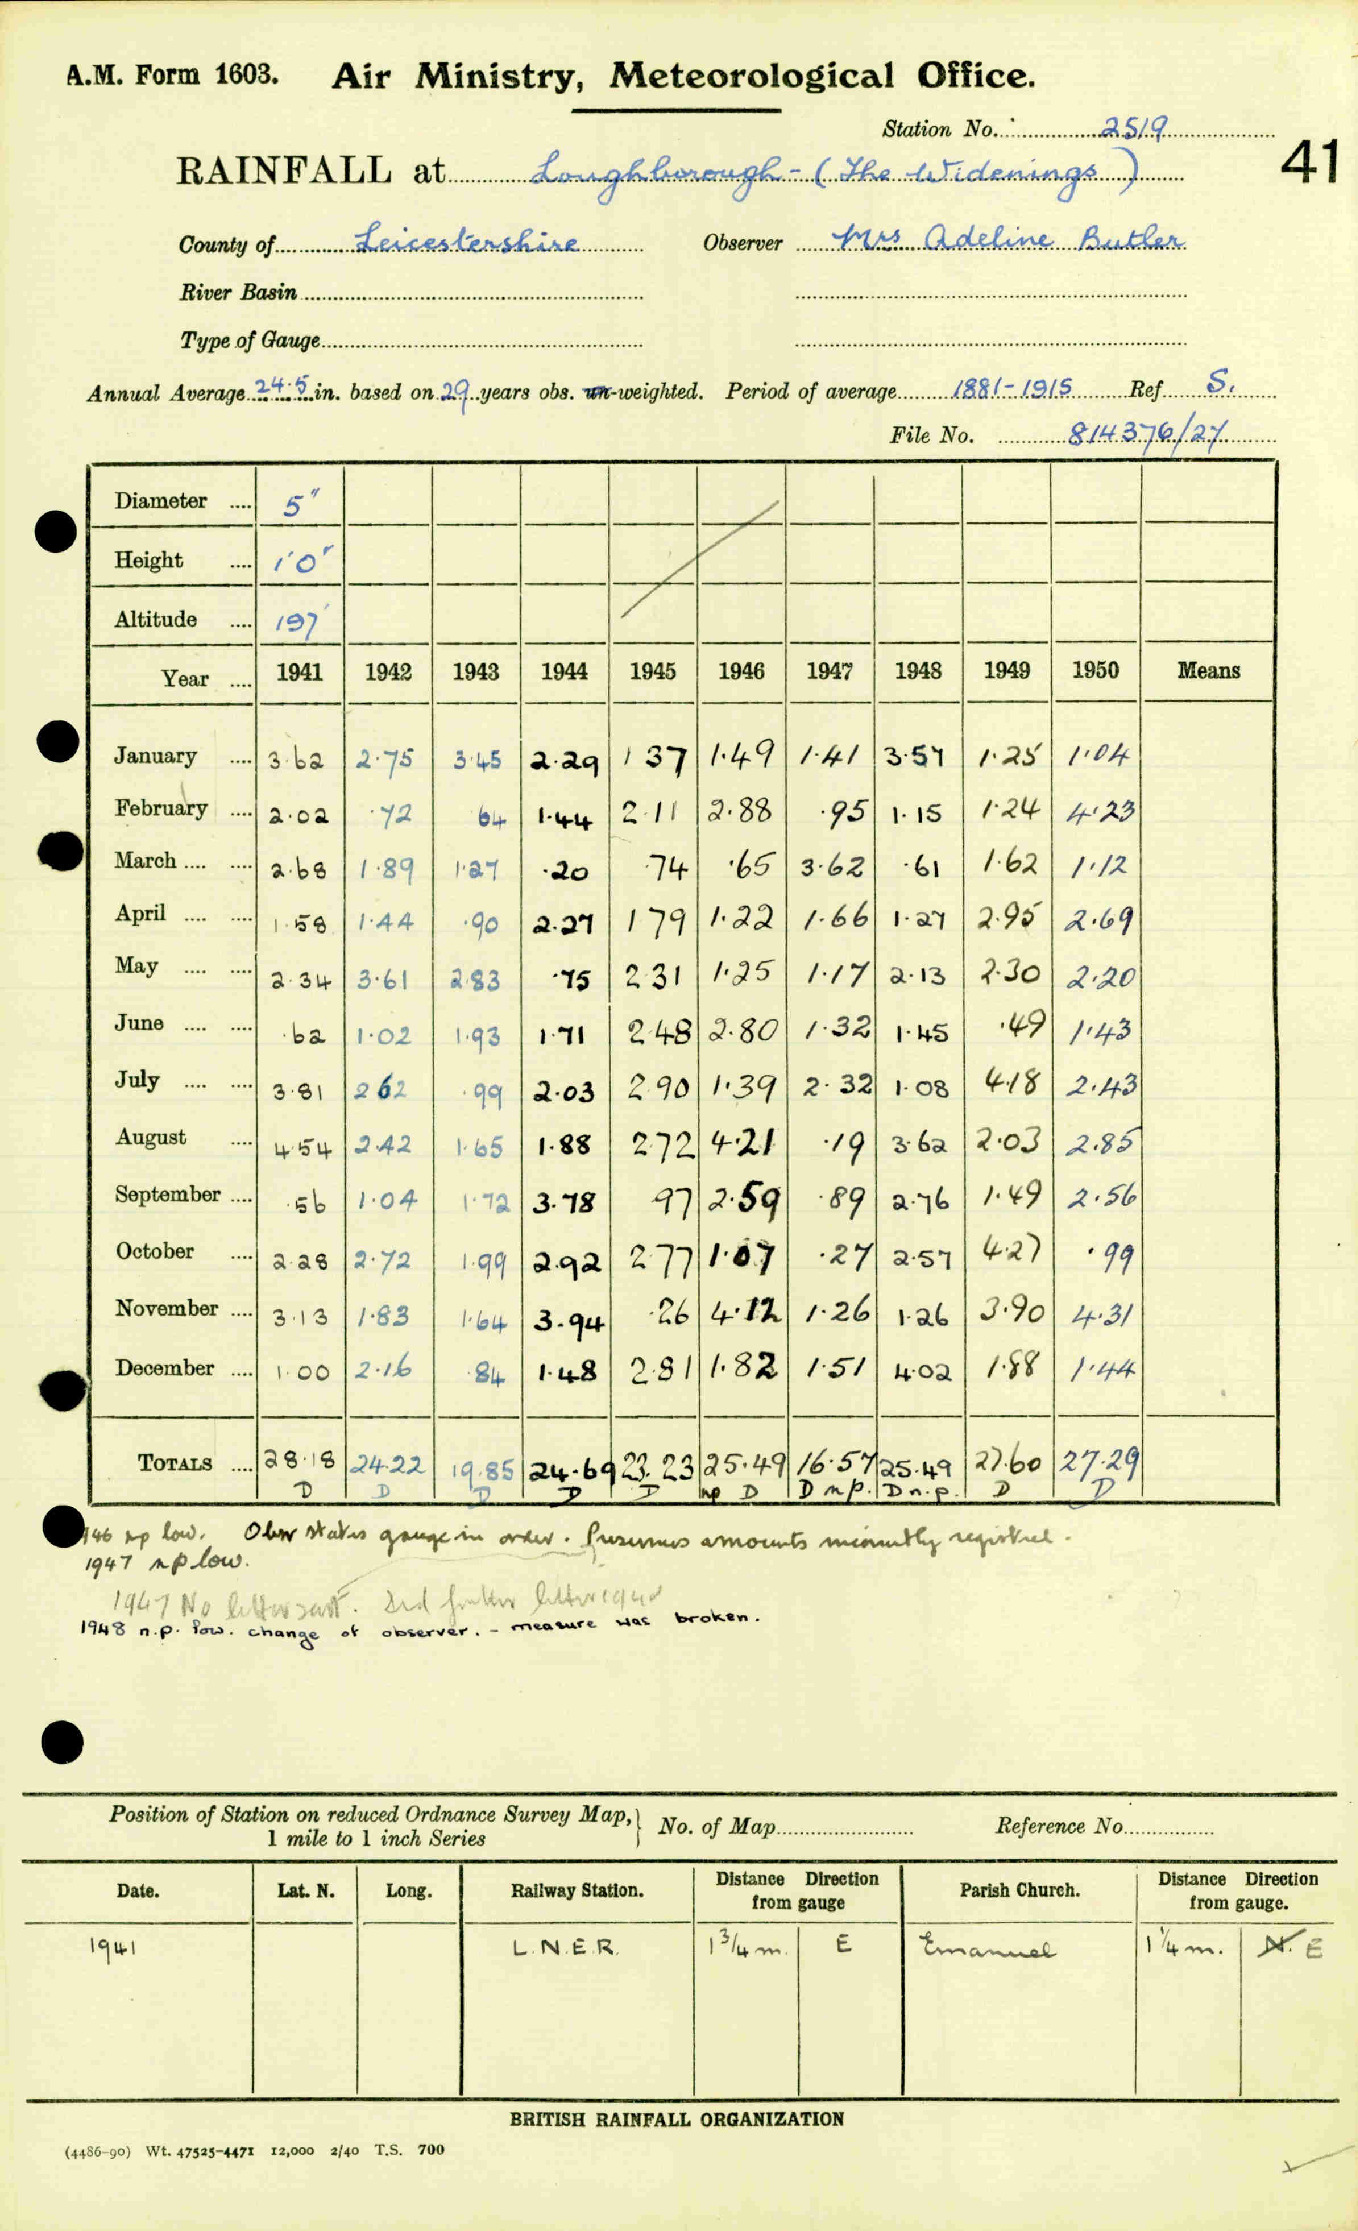 A.M. Form 1603. Air Ministry, Meteorological Office.
Station No. 2519
41
RAINFALL at Loughborough - (The Widenings)
County of Leicestershire Observer Mrs Adeline Butler
River Basin
Type of Gauge
Annual Average 24.5 in. based on 29 years obs. un-weighted. Period of average 1881-1915 Ref S.
File No. 814376/27
Diameter .... 5"
Height .... 1'0"
Altitude .... 197'
Year .... 1941 1942 1943 1944 1945 1946 1947 1948 1949 1950 Means
January .... 3.62 2.75 3.45 2.29 1 37 1.49 1.41 3.57 1.25 1.04
February .... 2.02 .72 64 1.44 2.11 2.88 .95 1.15 1.24 4.23
March .... .... 2.68 1.89 1.27 .20 .74 .65 3.62 .61 1.62 1.12
April .... .... 1.58 1.44 .90 2.27 1 79 1.22 1.66 1.27 2.95 2.69
May .... .... 2.34 3.61 2.83 .75 2.31 1.25 1.17 2.13 2.30 2.20
June .... .... .62 1.02 1.93 1.71 2.48 2.80 1.32 1.45 .49 1.43
July .... .... 3.81 2 62 .99 2.03 2.90 1.39 2.32 1.08 4.18 2.43
August .... 4.54 2.42 1.65 1.88 2.72 4.21 .19 3.62 2.03 2.85
September .... .56 1.04 1.72 3.78 97 2.59 .89 2.76 1.49 2.56
October .... 2.28 2.72 1.99 2.92 2.77 1.07 .27 2.57 4.27 .99
November .... 3.13 1.83 1.64 3.94 .26 4.12 1.26 1.26 3.90 4.31
December .... 1.00 2.16 .84 1.48 2.81 1.82 1.51 4.02 1.88 1.44
TOTALS .... 28.18 24.22 19.85 24.69 23.23 25.49 16.57 25.49 27.60 27.29
D D D D D np D D n p. D n.p. D D
46 np low. Obsr states gauge in order. Presumes amounts correctly registered.
1947 n p low.
1947 No letter sent. Did further letter
1948 n.p. low. change of observer. - measure was broken.
Position of Station on reduced Ordnance Survey Map, No. of Map Reference No.
1 mile to 1 inch Series
Date. Lat. N. Long. Railway Station. Distance Direction from gauge Parish Church. Distance Direction from gauge.
1941 L.N.E.R. 1 3/4 m. E Emanuel 1 1/4 m. N. E
BRITISH RAINFALL ORGANIZATION
(4486-90) Wt. 47525-4471 12,000 2/40 T.S. 700